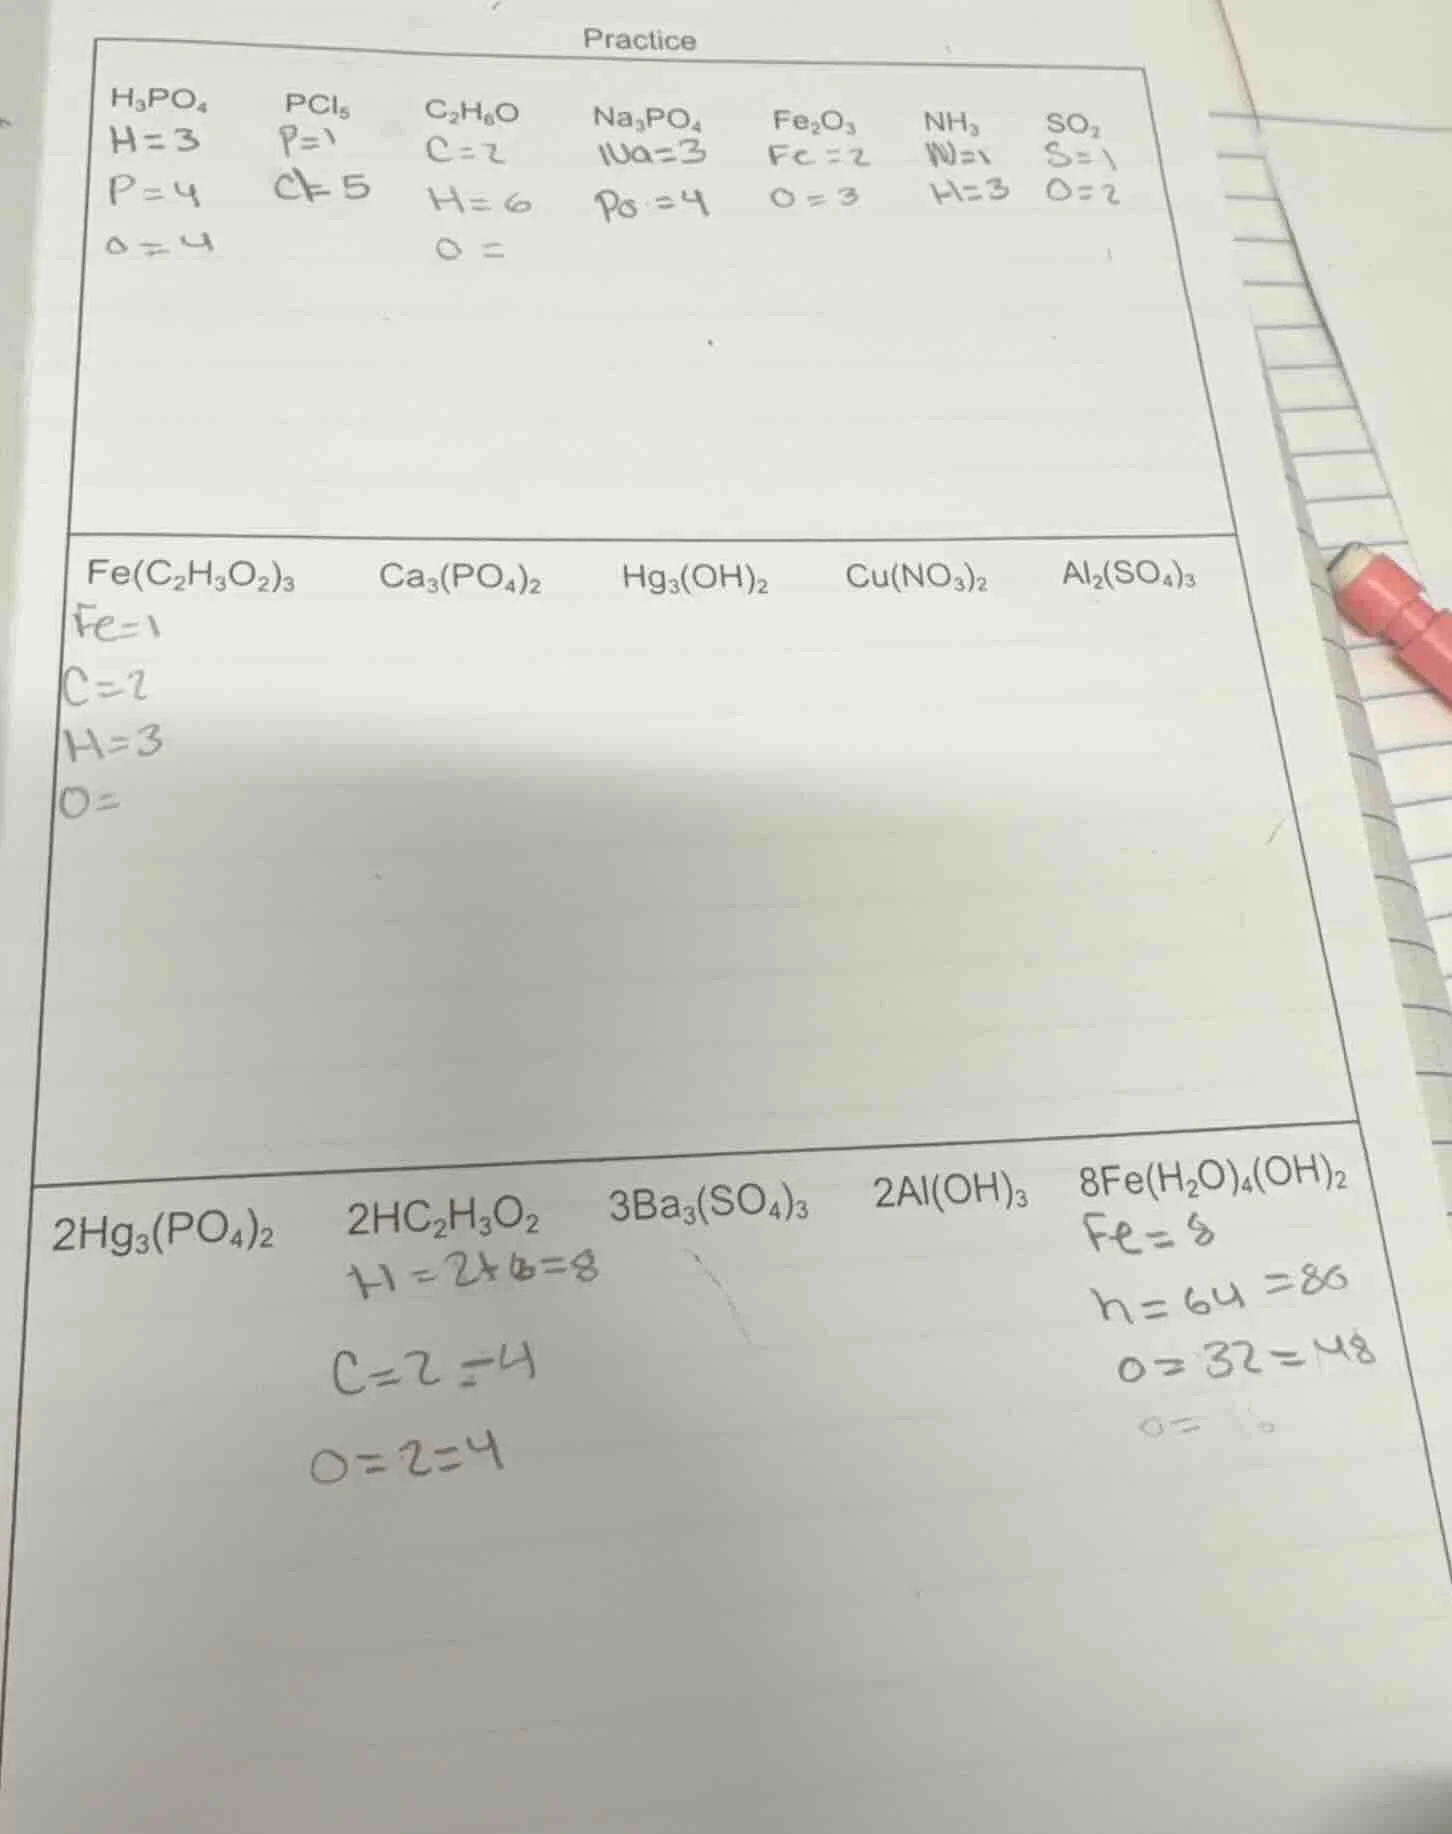 Practice
H₃PO₄ PCl₅ C₂H₆O Na₃PO₄ Fe₂O₃ NH₃ SO₂
H=3 P=1 C=2 Na=3 Fe=2 N=1 S=1
P=4 Cl=5 H=6 Po=4 O=3 H=3 O=2
O=4 O=
Fe(C₂H₃O₂)₃ Ca₃(PO₄)₂ Hg₃(OH)₂ Cu(NO₃)₂ Al₂(SO₄)₃
Fe=1
C=2
H=3
O=
2Hg₃(PO₄)₂ 2HC₂H₃O₂ 3Ba₃(SO₄)₃ 2Al(OH)₃ 8Fe(H₂O)₄(OH)₂
H=2+6=8 Fe=8
C=2=4 h=64=80
O=2=4 O=32=48
O=